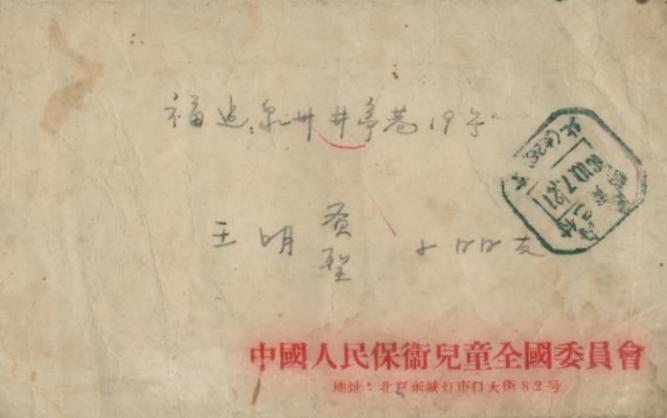 福建泉州井亭巷19号
王明贤
聖
小朋友
中國人民保衛兒童全國委員會
地址：北京东城灯市口大街82号